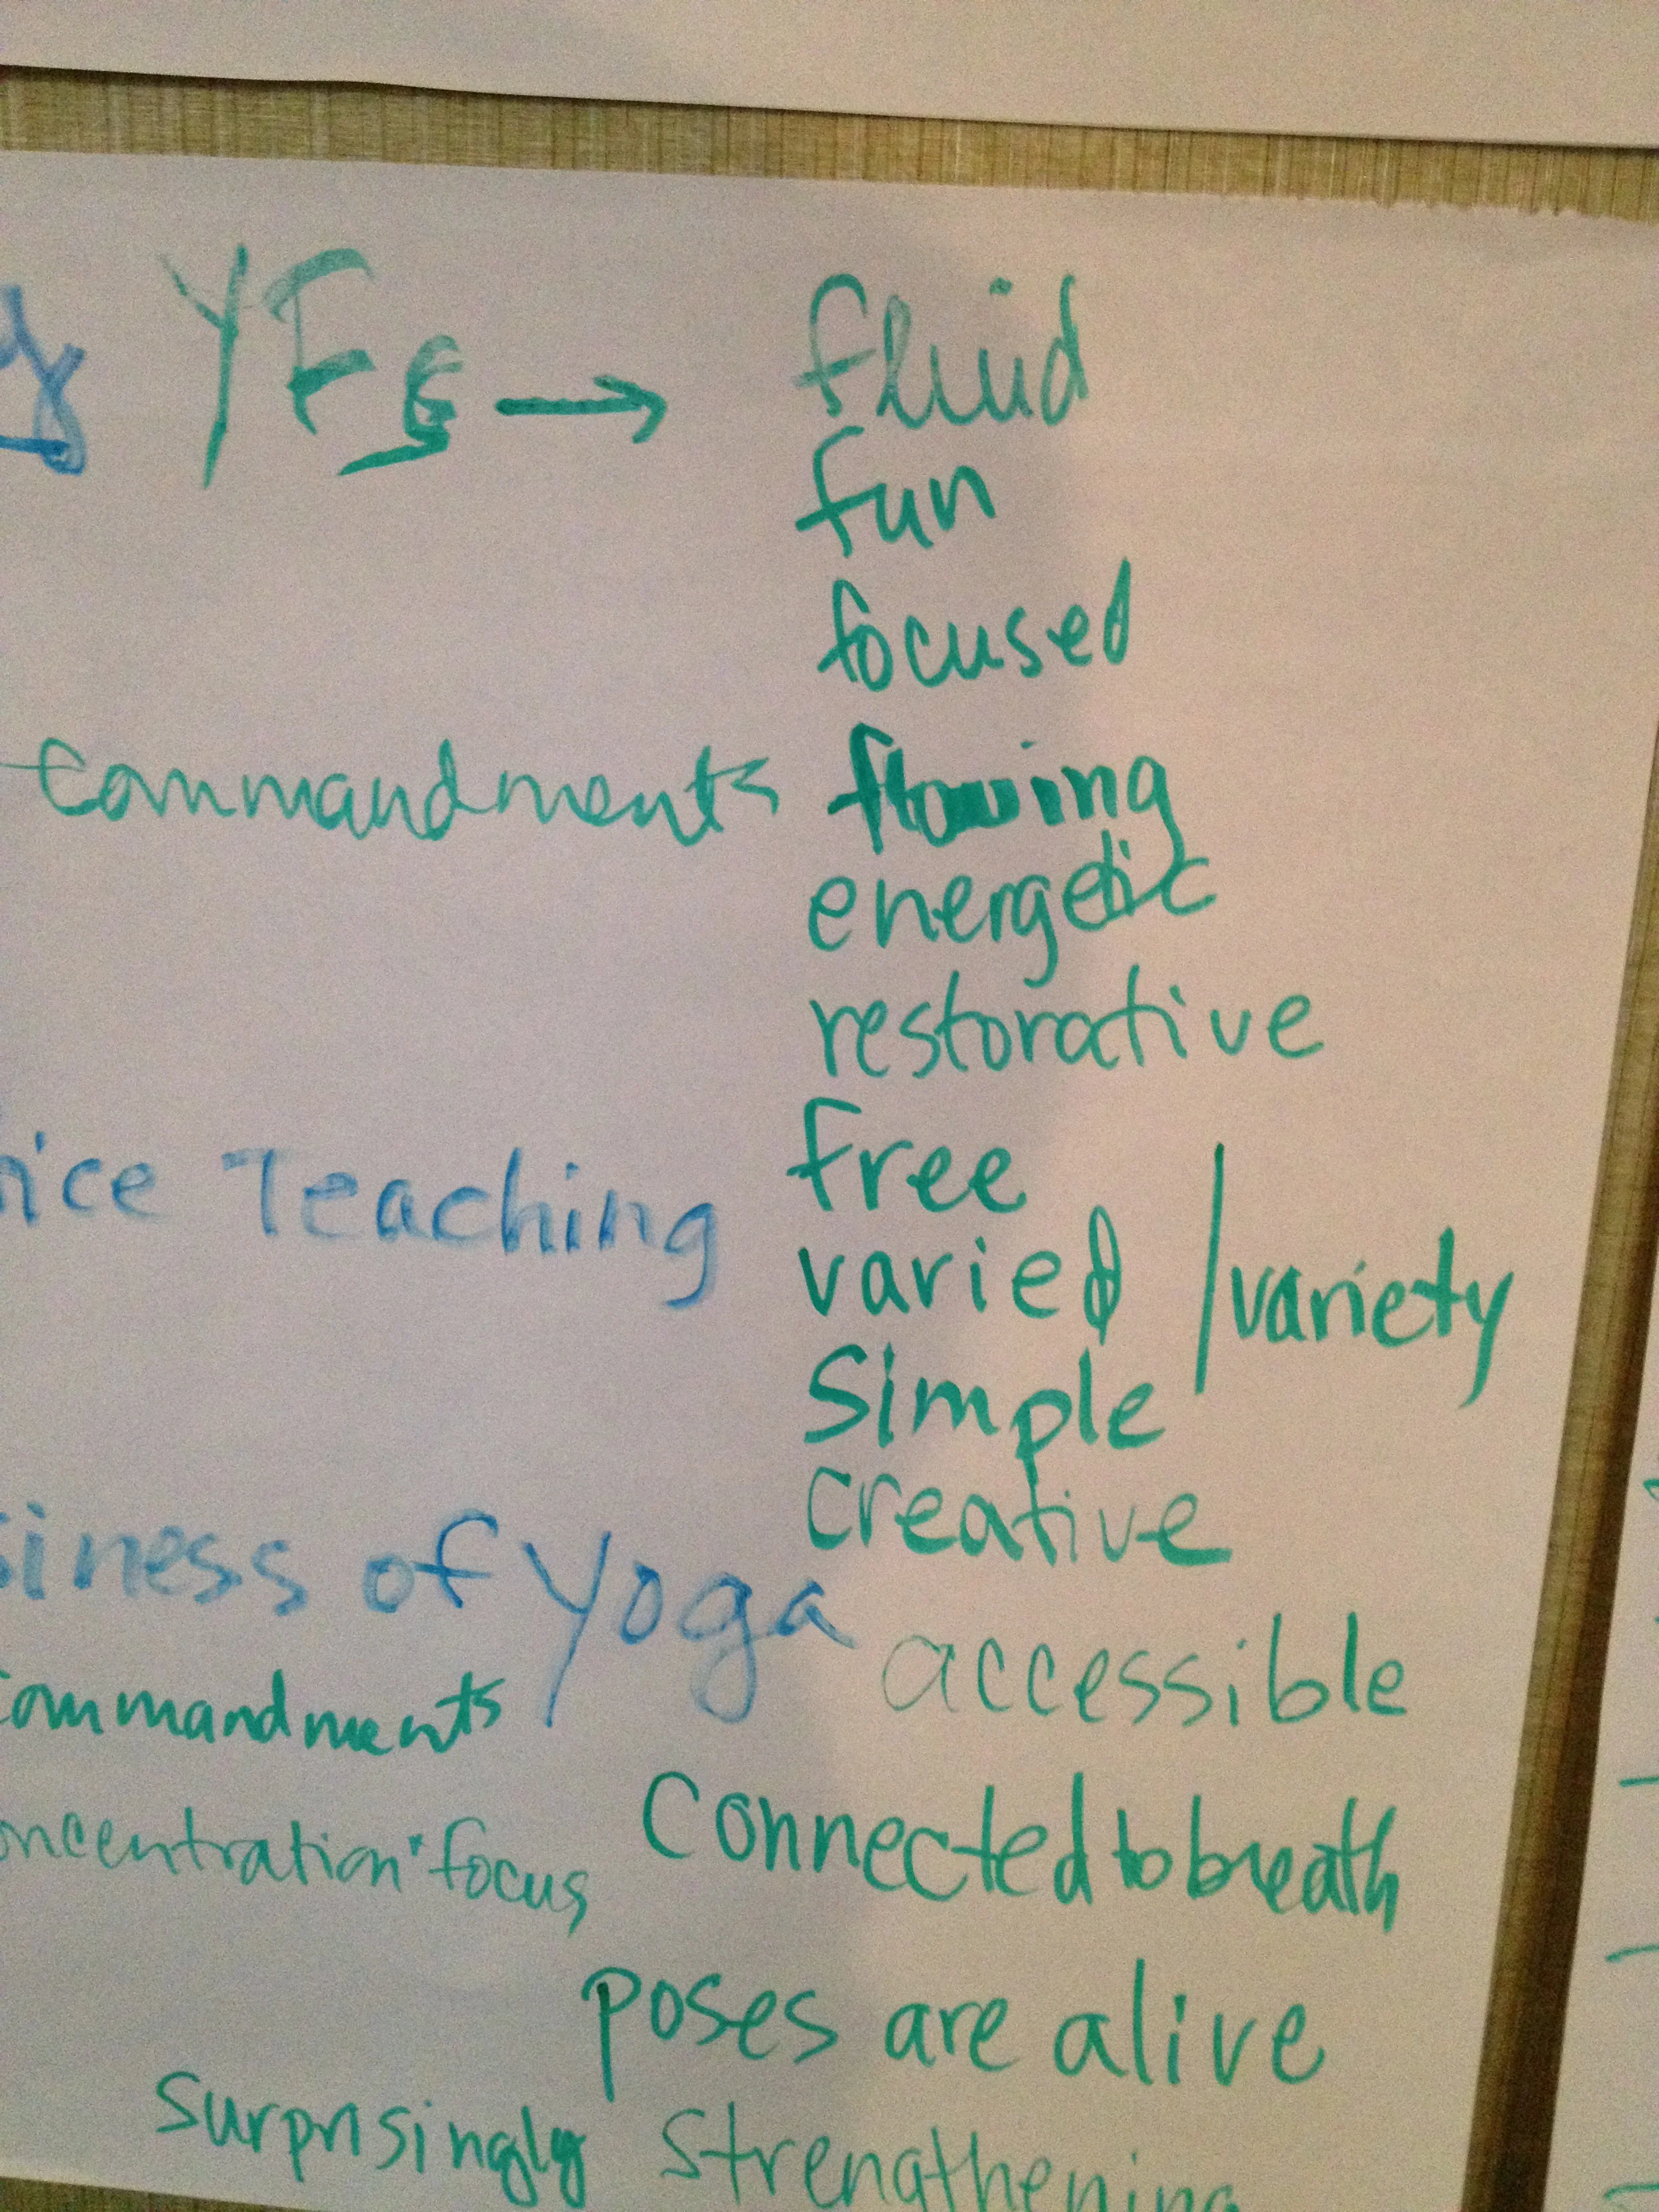 YFs → fluid
fun
focused
commandments flowing
energetic
restorative
free
Teaching
varied / variety
Simple
creative
of Yoga
accessible
commandments
Connected to breath
focus
poses are alive
surprisingly strengthening